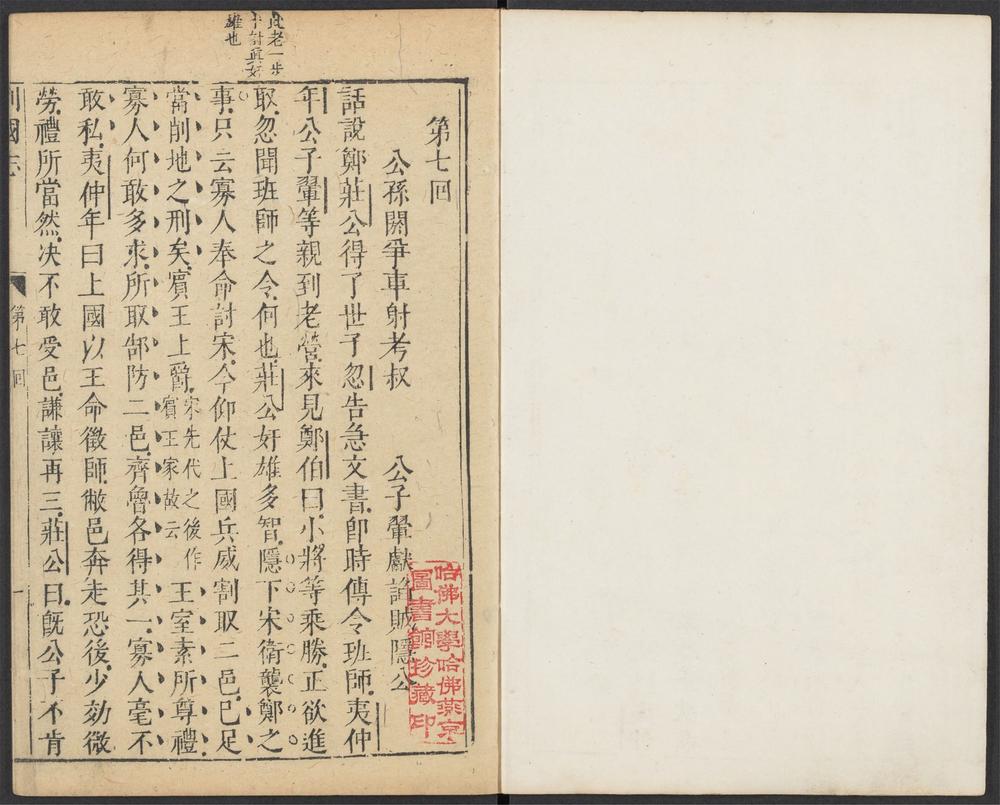 第七回
公孫閼爭車射考叔　公子翬獻謟賊隱公
話說鄭莊公得了世子忽告急文書卽時傳令班師夷仲
年公子翬等親到老營來見鄭伯曰小將等乘勝正欲進
取忽聞班師之令何也莊公奸雄多智隱下宋衛襲鄭之
事只云寡人奉命討宋今仰仗上國兵威割取二邑已足
當削地之刑矣賓王上爵宋先代之後作賓王家故云王室素所尊禮
寡人何敢多求所取郜防二邑齊魯各得其一寡人毫不
敢私夷仲年曰上國以王命徵師敝邑奔走恐後少効微
勞禮所當然決不敢受邑謙讓再三莊公曰旣公子不肯
此老一步
十計真奸
雄也
列國志
第七回
一
哈佛大學哈佛燕京
圖書館珍藏印